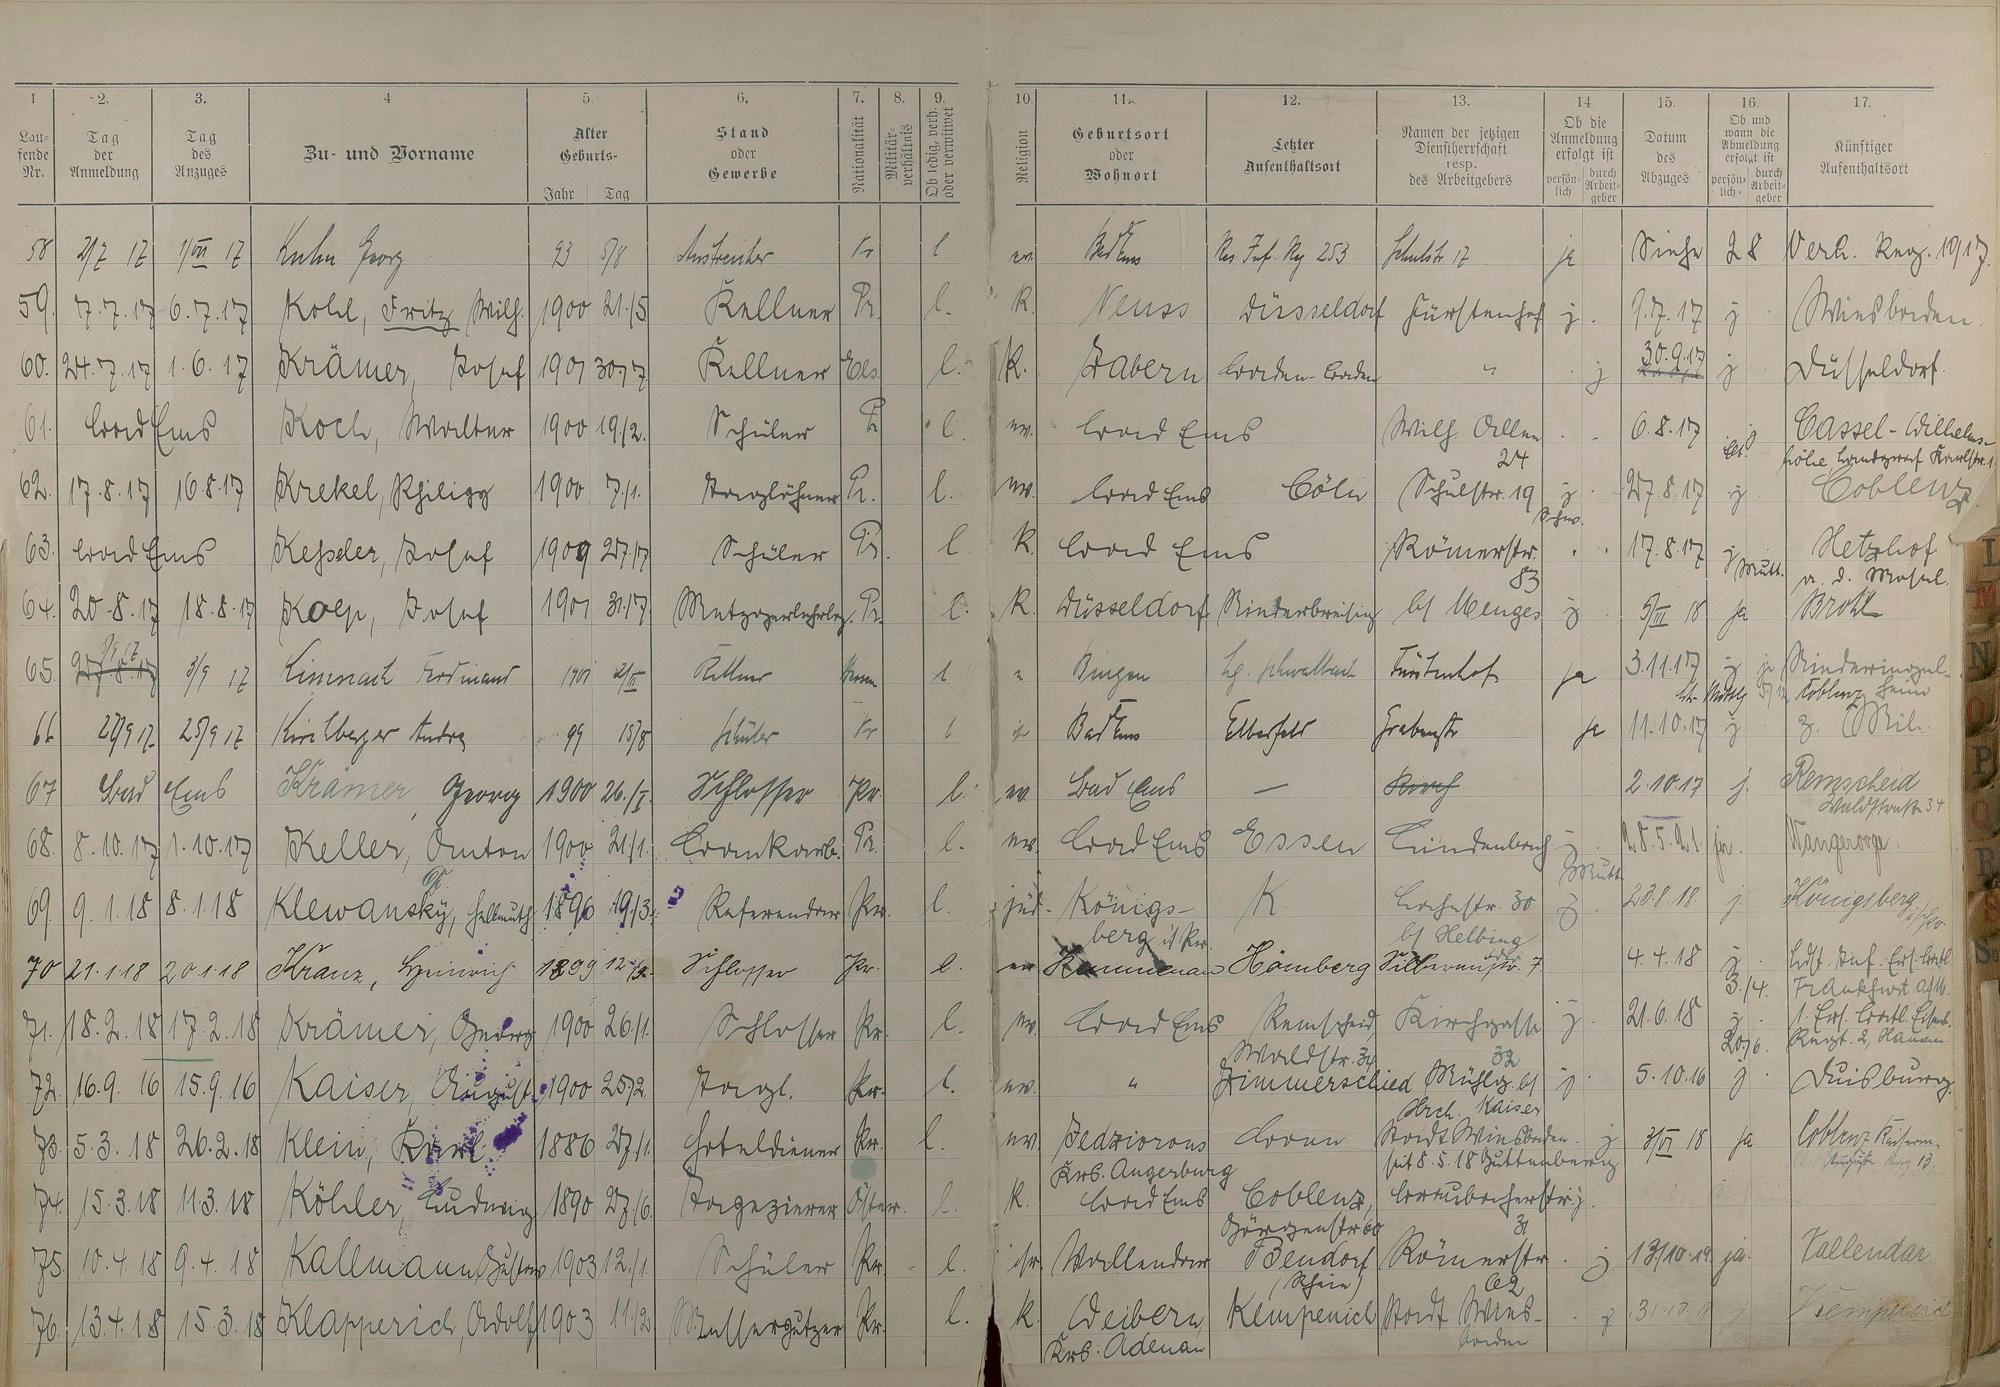 1 2. 3. 4 5. 6. 7. 8. 9. 10. 11. 12. 13. 14. 15. 16. 17.
Lau-fende Nr. Tag der Anmeldung Tag des Anzuges Zu- und Vorname Alter Geburts- Jahr Tag Stand oder Gewerbe Nationalität Militär-verhältnis Ob ledig, verh. oder verwitwet Religion Geburtsort oder Wohnort Letzter Aufenthaltsort Namen der jetzigen Dienstherrschaft resp. des Arbeitgebers Ob die Anmeldung erfolgt ist persön-lich durch Arbeit-geber Datum des Abzuges Ob und wann die Abmeldung erfolgt ist persön-lich durch Arbeit-geber Künftiger Aufenthaltsort
58 2/7 17 1/VII 17 Kuhn Georg 93 5/8 Anstreicher Pr l ev. Bad Ems Res. Inf. Rg 253 Schulstr 17 ja 28
59. 7.7.17 6.7.17 Kohl, Fritz Wilh. 1900 21./5 Kellner Pr. l. K. Neuss Düsseldorf Fürstenhof j. 9.7.17 j Wiesbaden.
60. 24.7.17 1.6.17 Krämer, Josef 1901 30./7 Kellner Els. l. K. Zabern Baden-Baden " j 30.9.17 j Düsseldorf.
61. Bad Ems Koch, Walter 1900 19./2. Schüler Pr l. ev. Bad Ems Wilh. Allee 24 6.8.17 Cassel-Wilhelms-
höhe Landgraf Karlstr. 1
62. 17.8.17 16.8.17 Krekel, Philipp 1900 7./1. Tagelöhner Pr. l. ev. Bad Ems Cöln Schulstr. 19 j 27.8.17 j Coblenz.
63. Bad Ems Keßeler, Josef 1909 27./7 Schüler Pr. l. K. Bad Ems Römerstr. 83 17.8.17 j Mutt. Hetzhof
a. d. Mosel.
64. 20.8.17 18.8.17 Kolp, Josef 1901 31./7 Metzgerlehrlg. Pr. l. K. Düsseldorf Niederbreisig b/ Menges j 5/III 18 ja Brohl
65. 3/9 17 Ferdinand 1901 Kellner Hessen l " Bingen Lg. Schwalbach Fürstenhof ja 3.11.17 j
Coblenz
66 27/9 17 25/9 17 Kirchberger Andre 99 15/8 Schüler Pr l Bad Ems Elberfeld Grabenstr ja 11.10.17 j z. Mil.
67 Bad Ems Krämer, Georg 1900 26./I. Schlosser Pr. l. ev. Bad Ems — 2.10.17 j. Remscheid
Waldstrasse 34
68. 8.10.17 1.10.17 Keller, Anton 1900 21./1. Bankarb. Pr. l. ev. Bad Ems Essen Lindenbach j 28.5.21. ja. Wangerooge.
69. 9.1.18 8.1.18 Klewansky, Hellmuth 1896 19./3. Referendar Pr. l. jüd. Königs-
berg i/ Pr. K. Bahnstr. 30
b/ Helbing j. 23.8.18. j. Königsberg i/Pr.
70 21.1.18 20.1.18 Kranz, Heinrich 1899 12./2. Schlosser Pr. l. ev Kemmenau Hömberg Silberaustr. 7. 4.4.18 j 3./4. Frankfurt a/M.
71. 18.2.18 17.2.18 Krämer, Georg 1900 26./1. Schlosser Pr. l. ev. Bad Ems Remscheid, Kirchgasse 32 j 21.6.18 j. 20/6. 1. Ers. Batl. Eisenb.
Waldstr. 34 Regt. 2, Hanau.
72. 16.9.16 15.9.16 Kaiser, August 1900 25./2. Tagl. Pr. l. ev. " Zimmerschied Mühlg. b/ j 5.10.16 j Duisburg.
Hrch. Kaiser
73. 5.3.18 26.2.18 Klein, Karl 1886 27./1. Hoteldiener Pr. l. ev. Stadt Wiesbaden. j 3/VI 18 ja Coblenz Kaiserin-
Krs. Angerburg seit 8.5.18 Guttenberg Augusta Ring 13.
74. 15.3.18 11.3.18 Köhler, Ludwig 1890 27./6. Tapezierer Öster. l. K. Bad Ems Coblenz, Braubacherstr. 31 j.
Görgenstr 60
75. 10.4.18 9.4.18 Kallmann, Gustav 1903 12./1. Schüler Pr. l. isr. Vallendar Bendorf Römerstr. 62 j 13/10.19 ja. Vallendar
(Rhein)
76. 13.4.18 15.3.18 Klapperich, Adolf 1903 11./2 Messerputzer Pr. l. K. Weibern, Kempenich Stadt Wies- j Kempenich
Krs. Adenau baden
L
M
N
O
P
Q
R
S